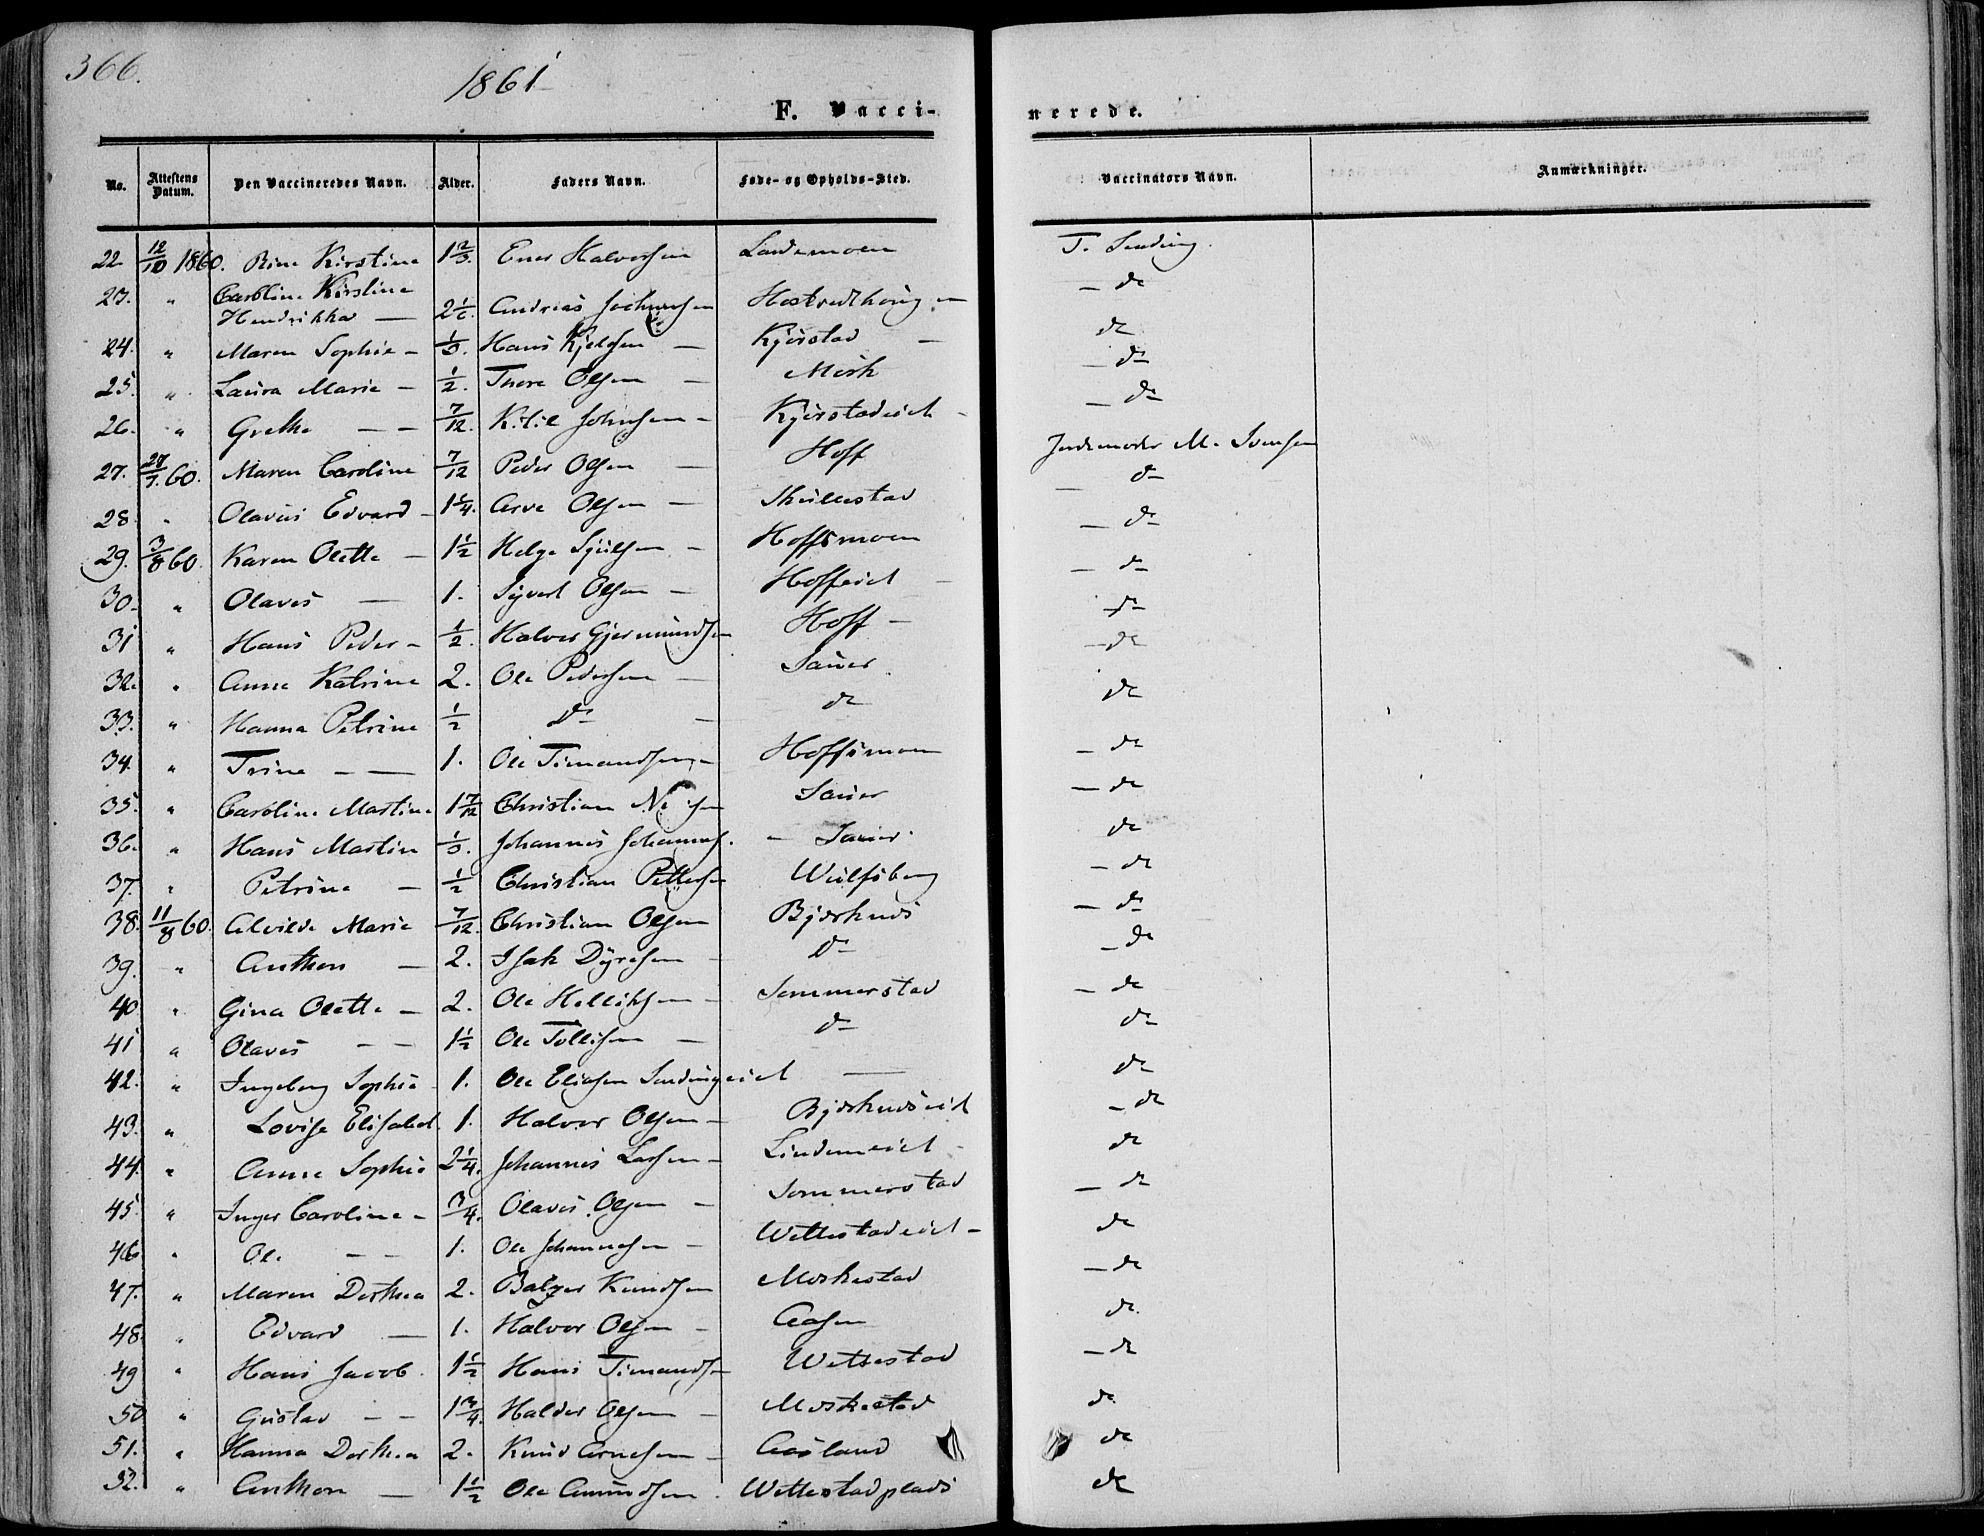 366.
1861
F. Vacci-
nerede.
No. Attestens Datum. Den Vaccineredes Navn. Alder. Faders Navn. Føde- og Opholds-Sted. Vaccinators Navn. Anmærkninger.
22. 12/10 1860. Kirstine 1 2/3. Halvorsen T. Sending.
23. " Caroline Kirstine
Hendrikka — Andreas — de
24. " Maren Sophie — 1/3. Hans Kjelsen — Kjørstad — de
25. " Laura Marie — 1/2. Thore Olsen — Mørk — de
26. " Grethe — — 7/12. Kitil Johnsen — Kjørstadeiet — — de
27. 27/7 60. Maren Caroline 7/12 Peder Olsen — Hoff Jordemoder M. Svensen
28. " Olavus Edvard — 1 1/4. Arve Olsen — Skullestad — de
29. 3/8 60. Karen Olette — 1 1/2 Helge — Hoffsmoen — de
30. " Olaves — 1. Syvert Olsen — Hoffeiet — — de
31 " Hans Peder — 1/2. Halvor Gjermundsen Hoff — de
32. " Anne Katrine 2. Ole Pedersen — Sauer — de
33. " Hanna Petrine 1/2 De — de de
34. " Trine — — 1. Ole Timandsen — Hoffsmoen — de
35. " Caroline Martine 1 7/12 Christian Sauer — de
36. " Hans Martin 1/3. Johannes Johannes. — Sauer. de
37. " Petrine — 1/2 Christian Pettersen Wulfsberg — de
38. 11/8 60. Alvilde Marie 7/12. Christian Olsen Bjørknes — de
39. " Anthon — 2. Isak Dyresen — De — de
40. " Gina Olette — 2. Ole Helliksen — Sommerstad — de
41 " Olaves — — 1 1/2 Ole Tollefsen — de de
42. " Ingeborg Sophie 1. Ole Eliasen Sendingeiet — de
43. " Lovise Elisabet. 1. Halvor Olsen — Bjørkneseiet — de
44. " Anne Sophie 2 1/4. Johannes Larsen — Lindemeiet — de
45. " Inger Caroline — 3/4. Olaves Olsen — Sommerstad — de
46 " Ole — — 1. Ole Johannesen — Wettestadeiet — de
47. " Maren Dorthea 2. Balzer Knudsen Moskestad — de
48. " Edvard — 1. Halvor Olsen — Aasen de.
49 " Hans Jacob. 1 1/2 Hans Timandsen Wettestad — de
50 " Gustav — — 1 3/4. Halvor Olsen — Moskestad de
51. " Hanna Dorthea 2. Knud Arnesen — Aasland de
52. " Anthon — 1 1/2 Ole Amundsen. Wettestadplads de